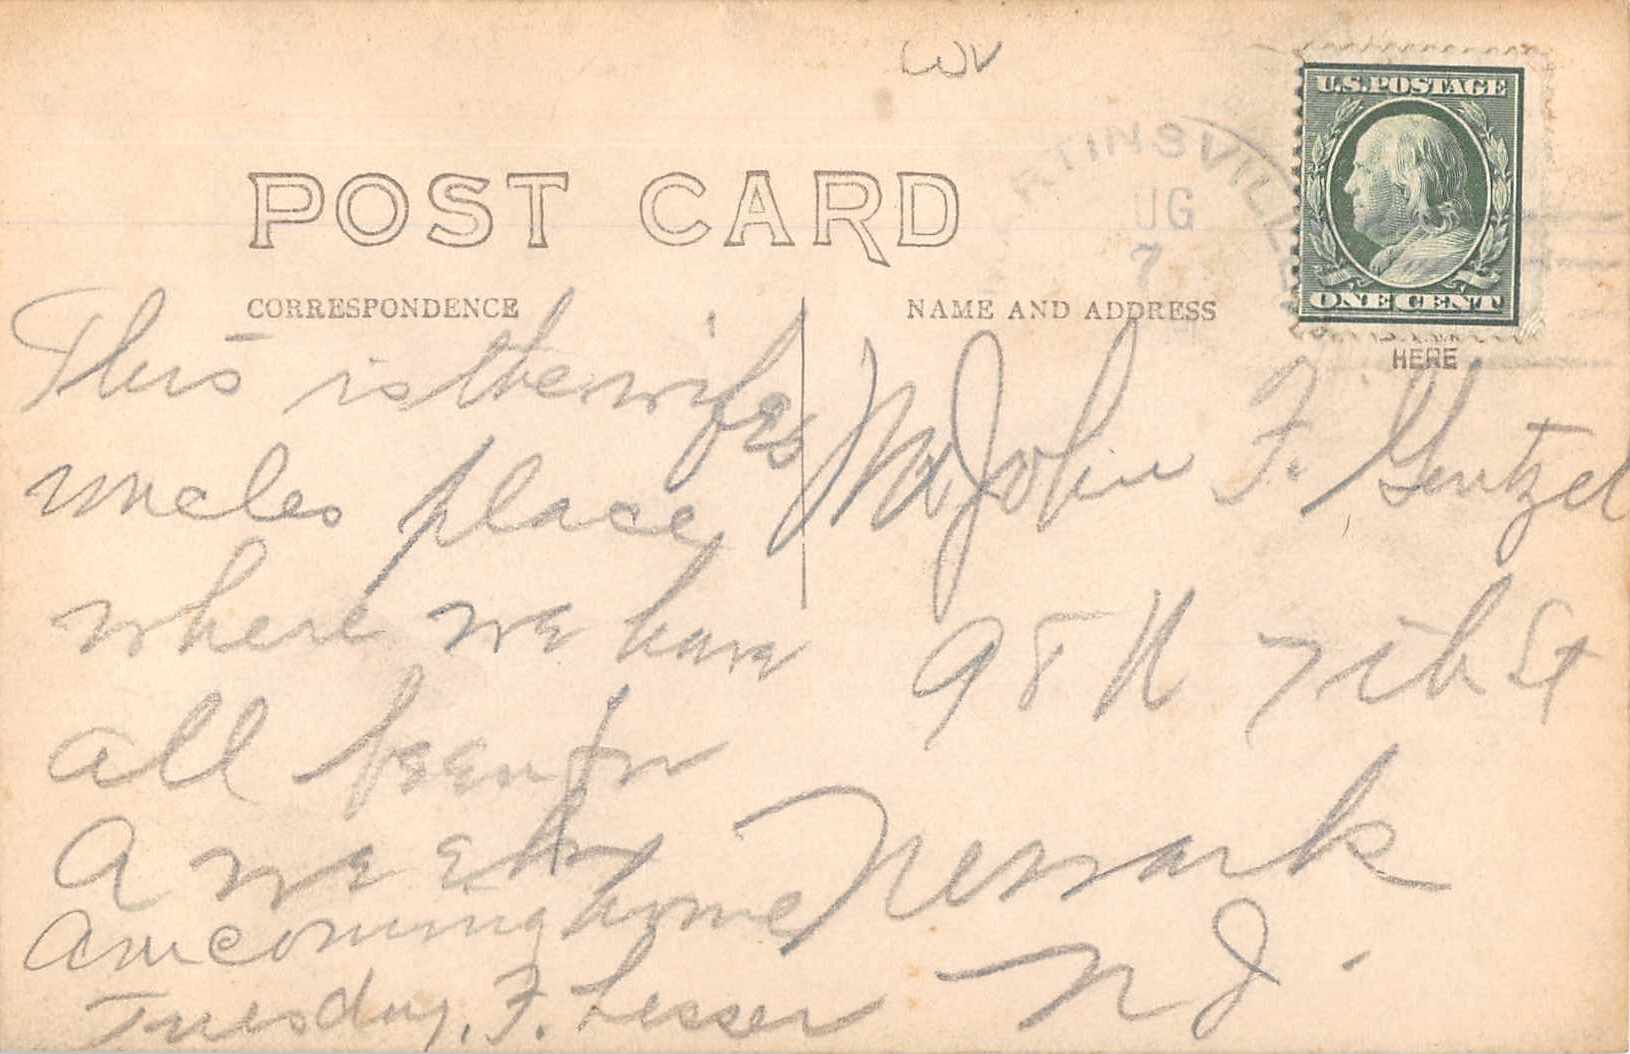 WV
U.S. POSTAGE
ONE CENT
HERE
RTINSVILLE
UG
7
POST CARD
CORRESPONDENCE
NAME AND ADDRESS
This is the wifes
uncles place
where we have
all been for
A week
Am coming home
Tuesday. F. Lesser
Mr John F. Gentzel
98 N 7th St
Newark
N J.